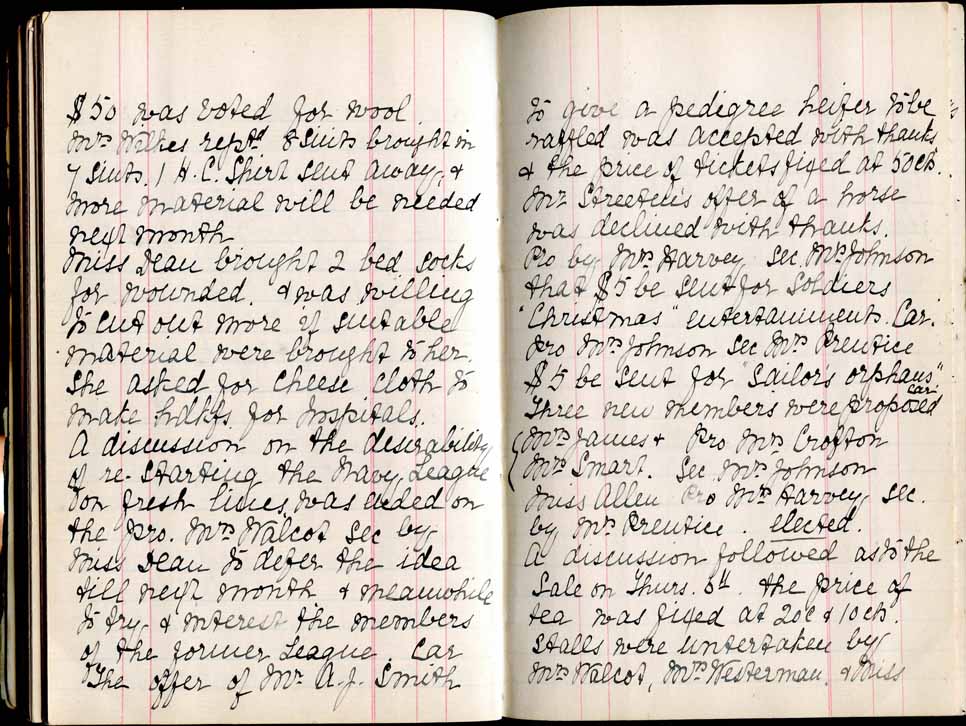 $50 was voted for wool.
Mrs Wilkes reptd 8 suits brought in
7 suits. 1 H.C. Shirt sent away, &
more material will be needed
next month
Miss Dean brought 2 bed socks
for wounded. & was willing
to cut out more if suitable
material were brought to her.
She asked for cheese cloth to
make hdkfs for hospitals.
A discussion on the desirability
of re-starting the Navy League
on fresh lines, was ended on
the pro. Mrs Walcot sec by
Miss Dean to defer the idea
till next month & meanwhile
to try & interest the members
of the former League. Car
The offer of Mr. A.J. Smith
to give a pedigree heifer to be
raffled was accepted with thanks
& the price of tickets fixed at 50cts.
Mr. Streeten's offer of a horse
was declined with thanks.
Pro by Mrs Harvey sec. Mrs Johnson
that $5 be sent for Soldiers
"Christmas" entertainments. Car.
Pro Mrs Johnson Sec Mrs Prentice
$5 be sent for "Sailor's orphans"
Car
Three new members were proposed
Mrs James & Pro Mrs Crofton
Mrs Smart. Sec. Mrs Johnson
Miss Allen Pro Mrs Harvey sec.
by Mrs Prentice. elected.
A discussion followed as to the
Sale on Thurs. the price of
tea was fixed at 20c & 10cts.
Stalls were undertaken by
Mrs Walcot, Mrs Westerman, & Miss